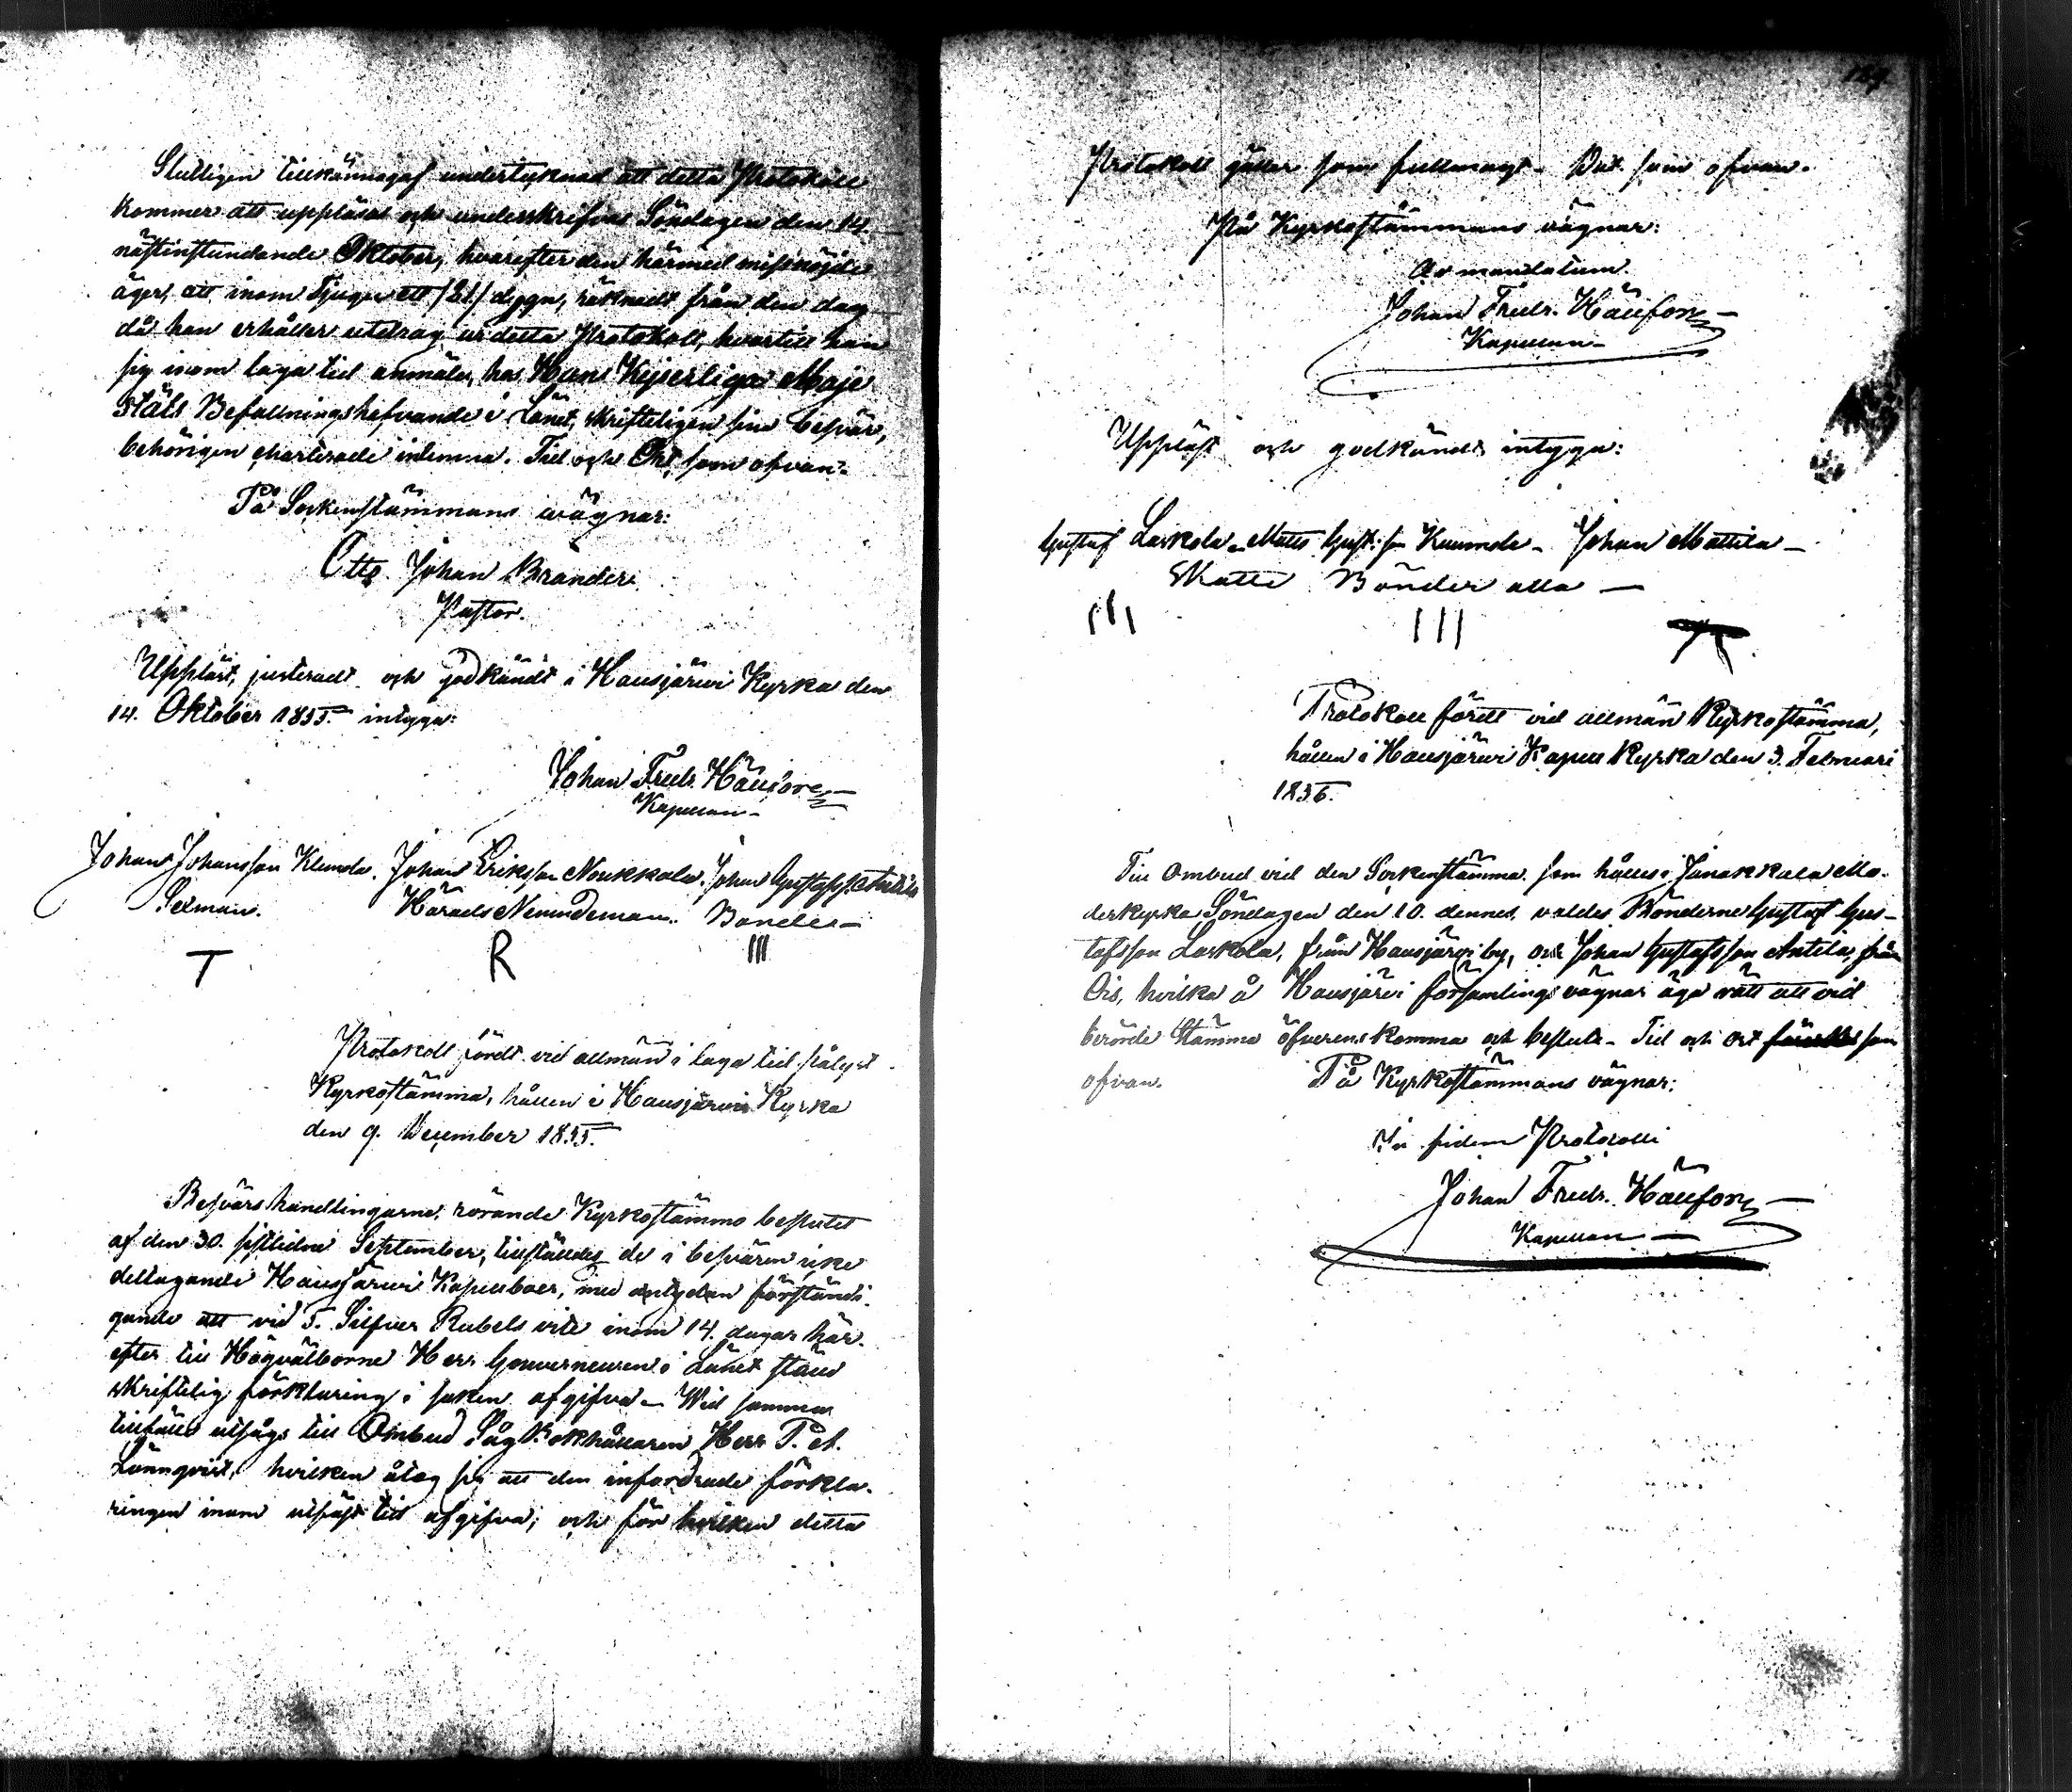 Slutligen tillkännagaf undertecknad att detta Protokoll
kommer att uppläsas och underskrifvas Söndagen den 14.
nästinstundande Oktober, hvarefter den härmed missnöjde
äger, att inom tjugu ett /21/ dygn, räknadt från den dag
då han erhåller utdrag ur detta Protokoll, hvartill han
sig inom laga tid anmäle, hos Hans Kejserliga Maje
stäts Befallningshafvande i Länet, skrifteligen sina besvär,
behörigen charterade inlemna. Tid och Ort som ofvan.
På Sockenstämmans wägnar:
Otto Johan Brander.
Pastor.
Uppläst, justeradt och godkändt i Hausjärwi Kyrka den
14. Oktober 1855. intyga:
Johan Fredr.
Kapellan
Johan Johansson Klemola. Johan Eriksson Noukkala. Johan Gustafss. Anttila
Sexman. Härads Nemndeman. Bonde
T R III
Protokoll fördt vid allmän i laga tid pålyst
Kyrkostämma, hållen i Hausjärwi Kyrka
den 9. December 1855.
Besvärshandlingarne, rörande Kyrkostämmo beslutet
af den 30. sistledne September, tillställdes de i besvären icke
deltagande Hausjärwi Kapellboer, med antydan förständi-
gande att vid 5. Silfver Rubels vite inom 14. dagar här-
efter till Högvälborne Herr Gouverneuren i Länet ställd
skriftelig förklaring i saken afgifva. Wid samma
tillfälle utsågs till Ombud Såg Bokhållaren Herr P. A.
Lönnqvist, hvilken åtog sig att den infordrade förkla-
ringen inom utsatt tid afgifva; och för hvilken detta
Protokoll gäller som fullmagt. Dat. som ofvan.
På Kyrkostämmans vägnar:
Ad mandatum.
Johan Fredr.
Kapellan
Uppläst och godkändt intyga:
Gustaf Laskola Matts Gust:son Johan Mattila
Skatte Bönder alla
III III
Protokoll fördt vid allmän Kyrkostämma,
hållen i Hausjärwi Kapell Kyrka den 3. Februari
1856.
Till Ombud vid den Sockenstämma som hålles i Janakkala Mo-
derkyrka Söndagen den 10. dennes, valdes Bönderne Gustaf Gus-
tafsson Laskola, från Hausjärvi by, och Johan Gustafsson Anttila, från
Ois, hvilka å Hausjärvi församlings vägnar äga rätt att vid
berörde Stämma öfverenskomma och besluta. Tid och Ort som
ofvan. På Kyrkostämmans vägnar:
In fidem Protocolli
Johan Fredr.
Kapellan